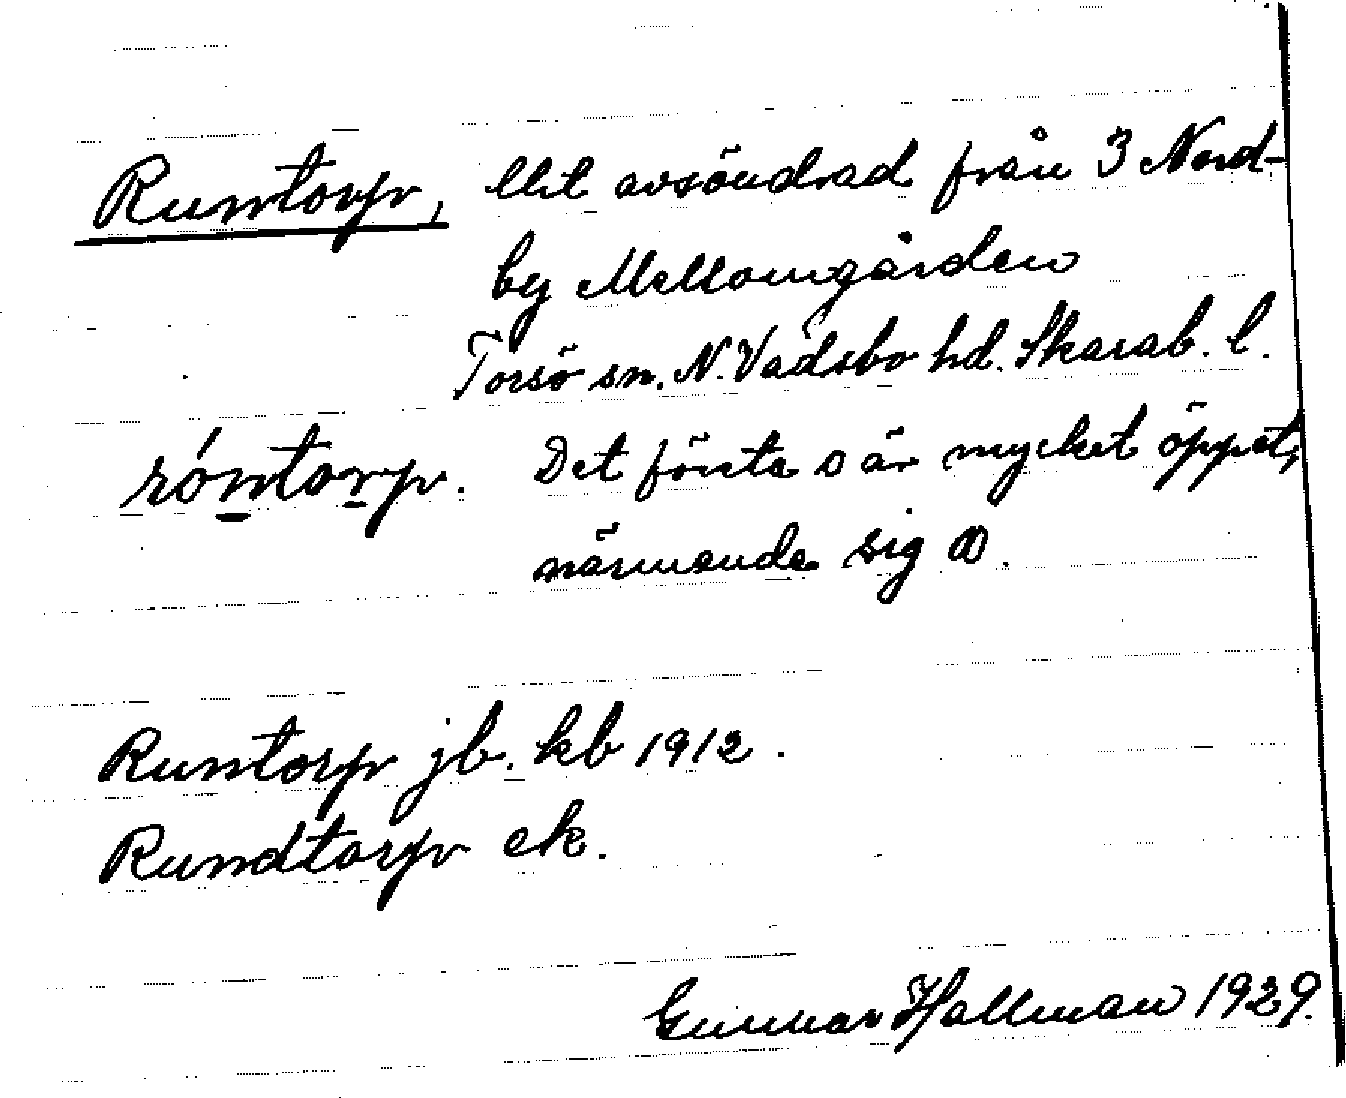 Runtorp, llht avsöndrad från 3 Nord-
by Mellomgården
Torsö sn. N. Vadsbo hd. Skarab. l.
róntorp. Det första o är mycket öppet,
närmande sig
Runtorp jb. kb 1912.
Rundtorp ek.
Gunnar Hallman 1929.